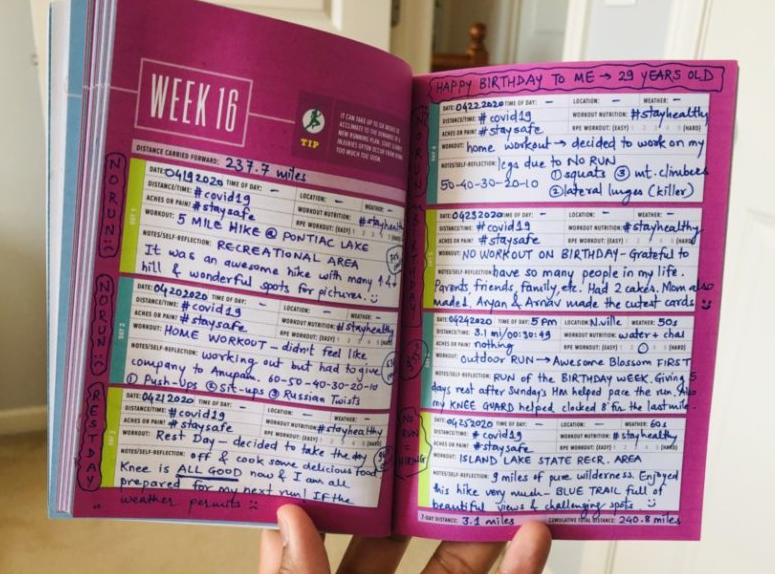 WEEK 16
TIP
IT CAN TAKE UP TO SIX WEEKS TO
ACCLIMATE TO THE DEMANDS OF A
NEW RUNNING PLAN. START SLOWLY.
INJURIES OFTEN OCCUR FROM DOING
TOO MUCH TOO SOON.
DISTANCE CARRIED FORWARD: 237.7 miles
NO RUN :(
DAY 1
DATE: 04192020 TIME OF DAY: - LOCATION: - WEATHER: -
DISTANCE/TIME: #covid19 WORKOUT NUTRITION: #stayhealthy
ACHES OR PAIN? #staysafe RPE WORKOUT: (EASY) 1 2 3 4 5 (HARD)
WORKOUT: 5 MILE HIKE @ PONTIAC LAKE
NOTES/SELF-REFLECTION: RECREATIONAL AREA
It was an awesome hike with many ↑ & ↓
hill & wonderful spots for pictures. :)
NO RUN :(
DAY 2
DATE: 04202020 TIME OF DAY: - LOCATION: - WEATHER: -
DISTANCE/TIME: #covid19 WORKOUT NUTRITION: #stayhealthy
ACHES OR PAIN? #staysafe RPE WORKOUT: (EASY) 1 2 3 4 5 (HARD)
WORKOUT: HOME WORKOUT - didn't feel like
NOTES/SELF-REFLECTION: working out but had to give
company to Anupam. 60-50-40-30-20-10
① Push-Ups ② Sit-ups ③ Russian Twists
REST DAY
DATE: 04212020 TIME OF DAY: - LOCATION: - WEATHER: -
DISTANCE/TIME: #covid19 WORKOUT NUTRITION: #stayhealthy
ACHES OR PAIN? #staysafe RPE WORKOUT: (EASY) 1 2 3 4 5 (HARD)
WORKOUT: Rest Day - decided to take the day
NOTES/SELF-REFLECTION: off & cook some delicious food
Knee is ALL GOOD now & I am all
prepared for my next run! If the
weather permits :)
HAPPY BIRTHDAY TO ME → 29 YEARS OLD
DATE: 04222020 TIME OF DAY: - LOCATION: - WEATHER: -
DISTANCE/TIME: #covid19 WORKOUT NUTRITION: #stayhealthy
ACHES OR PAIN? #staysafe RPE WORKOUT: (EASY) 1 2 3 4 5 (HARD)
WORKOUT: home workout → decided to work on my
NOTES/SELF-REFLECTION: legs due to NO RUN
50-40-30-20-10 ① squats ③ mt. climbers
② lateral lunges (killer)
DATE: 04232020 TIME OF DAY: - LOCATION: - WEATHER: -
DISTANCE/TIME: #covid19 WORKOUT NUTRITION: #stayhealthy
ACHES OR PAIN? #staysafe RPE WORKOUT: (EASY) 1 2 3 4 5 (HARD)
WORKOUT: NO WORKOUT ON BIRTHDAY - Grateful to
NOTES/SELF-REFLECTION: have so many people in my life.
Parents, friends, family, etc. Had 2 cakes. Mom also
made 1. Aryan & Arnav made the cutest cards :)
DATE: 04242020 TIME OF DAY: 5 pm LOCATION: N.ville WEATHER: 50s
DISTANCE/TIME: 3.1 mi/00:30:49 WORKOUT NUTRITION: water + chai
ACHES OR PAIN? nothing RPE WORKOUT: (EASY) 1 2 3 4 5 (HARD)
WORKOUT: outdoor RUN → Awesome Blossom FIRST
NOTES/SELF-REFLECTION: RUN of the BIRTHDAY WEEK. Giving 5
days rest after Sunday's HM helped pace the run. Also
my KNEE GUARD helped clocked 8' in the last mile.
NO RUN = HIKING
DATE: 04252020 TIME OF DAY: - LOCATION: - WEATHER: 60s
DISTANCE/TIME: #covid19 WORKOUT NUTRITION: #stayhealthy
ACHES OR PAIN? #staysafe RPE WORKOUT: (EASY) 1 2 3 4 5 (HARD)
WORKOUT: ISLAND LAKE STATE RECR. AREA
NOTES/SELF-REFLECTION: 9 miles of pure wilderness. Enjoyed
this hike very much - BLUE TRAIL full of
beautiful views & challenging spots :)
7-DAY DISTANCE: 3.1 miles CUMULATIVE TOTAL DISTANCE: 240.8 miles